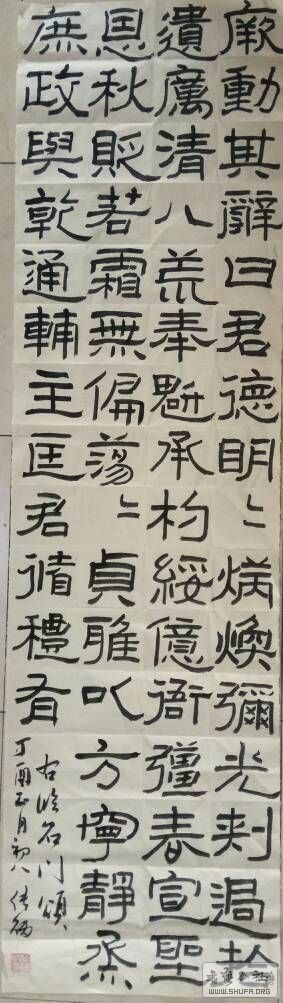 厥動其辭曰君德明〻炳煥彌光刺過拾
遺厲清八荒奉魁承杓綏億衙彊春宣聖
恩秋貶若霜無偏蕩〻貞雅以方寧靜烝
庶政與乾通輔主匡君循禮有
右臨石門頌
丁酉月初八
WWW.SHUFA.ORG